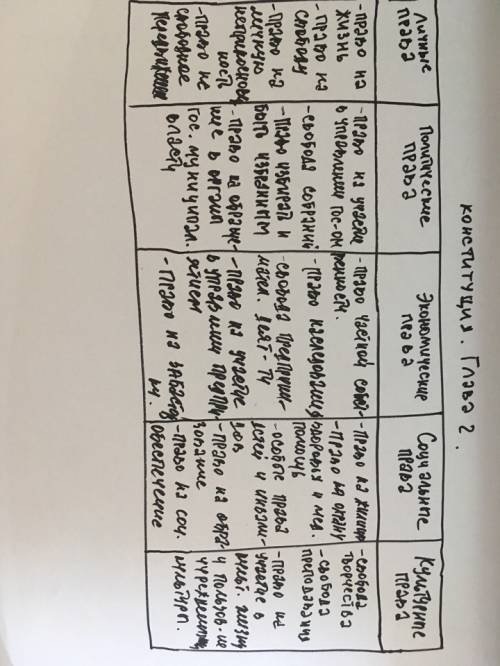 конституция. Глава 2.
Личные
права
Политические
права
Экономические
права
Социальные
права
Культурные
права
- право на
жизнь
- право на
свободу
- право на
личную
неприкоснов
ность
- право на
свободное
передвижение
- право на участие
в управлении гос-ом
- свобода собраний
- право избирать и
быть избранным
- право на обраще-
ние в органы
гос. муниципал.
власти
- право частной собст-
венности.
- право наследования
- свобода предприни-
мател. деят-ти
- право на участие
в управлении предпри-
ятием
- право на забастов
ку.
- право на жилище
- право на охрану
здоровья и мед.
помощь
- особые права
детей и инвали-
дов
- право на обра-
зование
- право на соц.
обеспечение
- свобода
творчества
- свобода
преподавания
- право на
участие в
культ. жизни
и пользов-ие
учреждениями
культуры.